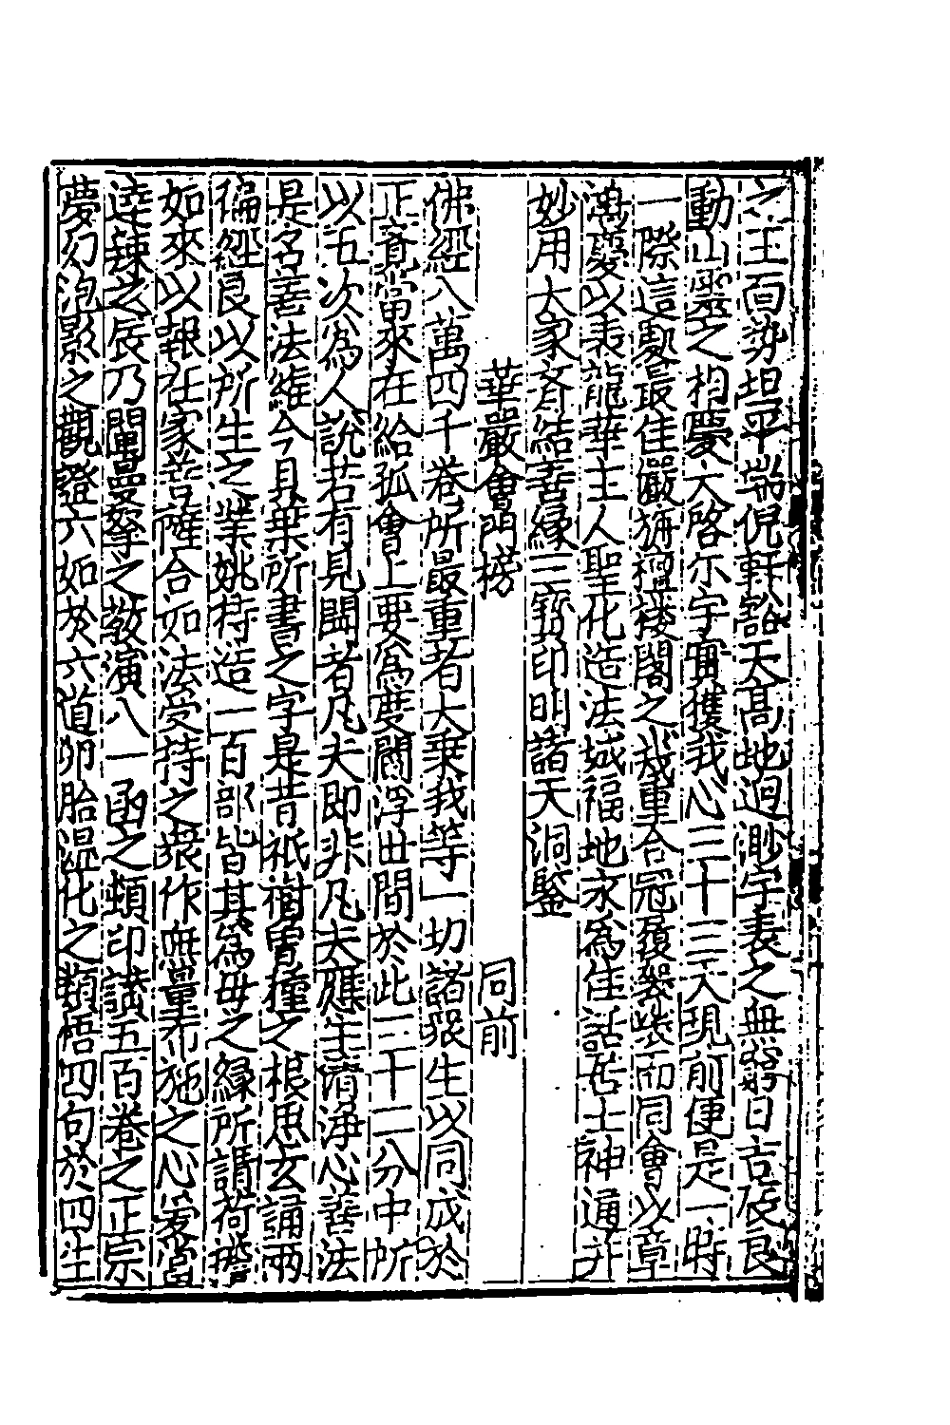 之王面勢坦平耑倪軒豁天高地迥渺宇表之無窮日吉辰良
動山靈之相慶大啓尓宇實獲我心三十三天現前便是一時
一際這駁最佳嚴旃檀樓閣之
重合冠履
而同會以章
鴻慶以表龍華主人聖化造法城福地永爲住話居士神通并
妙用大家齐結善緣三寳印明諸天洞鑒
華嚴會門榜 同前
佛經八萬四千卷所最重者大乗我等一切諸眾生以同成於
正覓當來在給孤會上要爲度閻浮世間於此三十二分中所
以五次爲人說若有見聞者凡夫即非凡夫應生清淨心善法
是名善法維今具葉所書之字是昔祇樹曽種之根思玄誦兩
徧經良以所生之業姚持造一百部皆其爲毋之緣所謂荷擔
如來以報在家菩薩合如法受持之衆作無量布施之心爰當
逵辣之辰乃闡曇拏之教演八一函之頓印講五百卷之正宗
夢幻泡影之觀證六如於六道卯胎濕化之類悟四句於四生